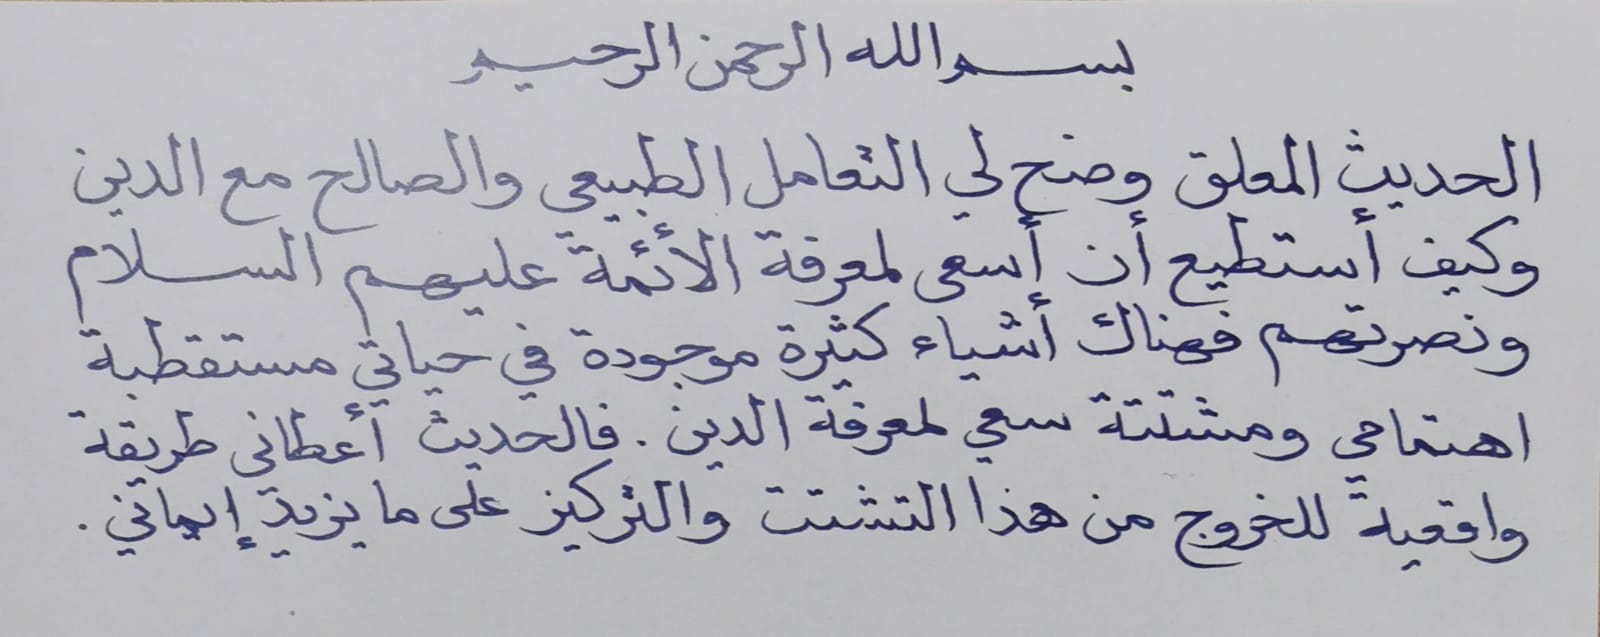 بسم الله الرحمن الرحيم
الحديث المعلق وضح لي التعامل الطبيعي والصالح مع الدين
وكيف أستطيع أن أسعى لمعرفة الأئمة عليهم السلام
ونصرتهم فهناك أشياء كثيرة موجودة في حياتي مستقطبة
اهتمامي ومشتتة سعي لمعرفة الدين. فالحديث أعطاني طريقة
واقعية للخروج من هذا التشتت والتركيز على ما يزيد إيماني.